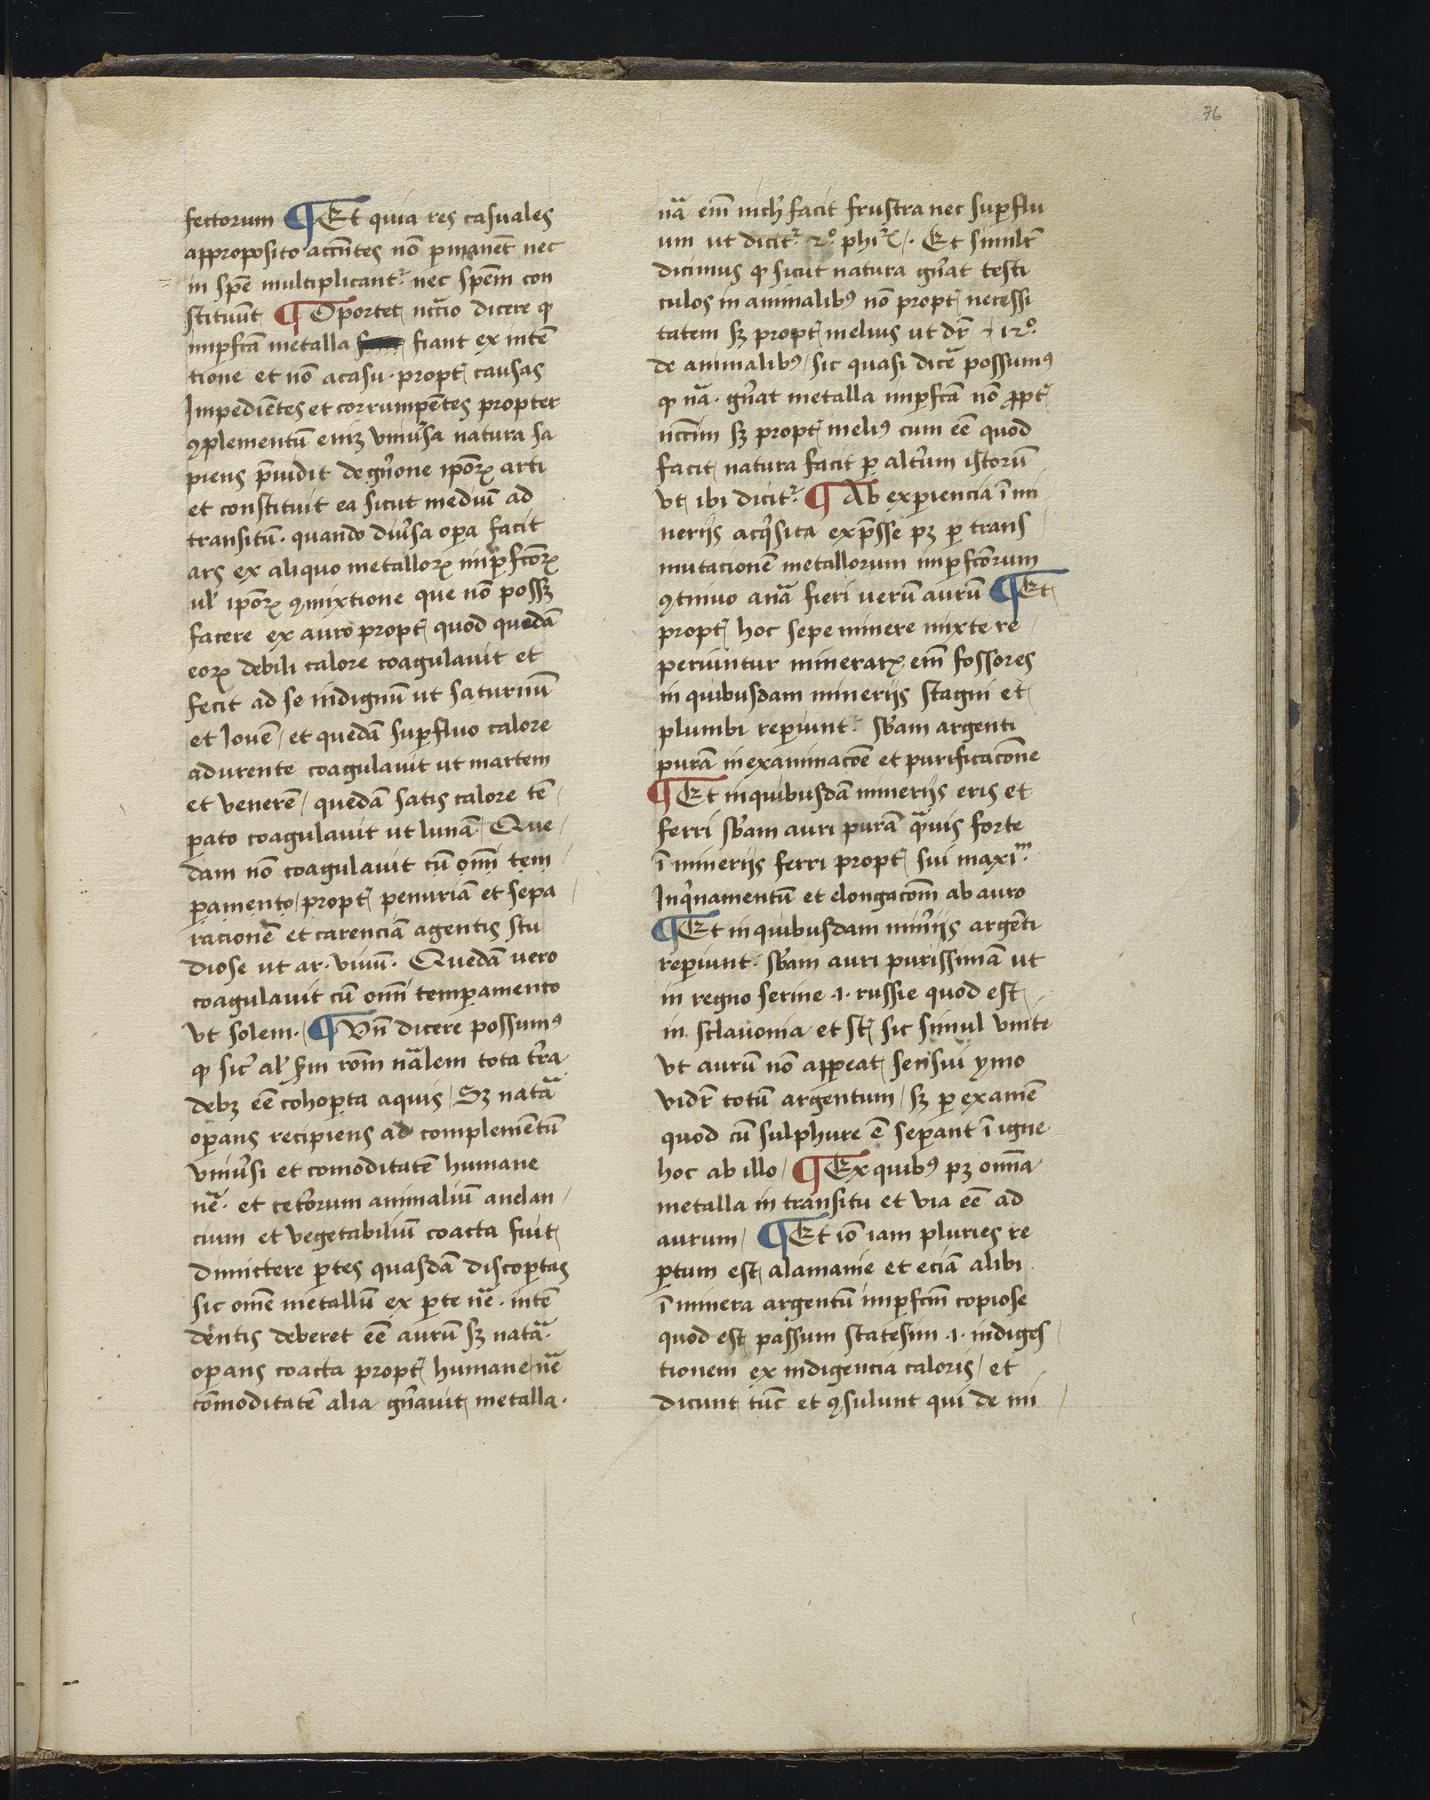 76
fectorum ¶ Et quia res casuales
approposito accñtes nõ ꝑmanẽt nec
in spẽ multiplicantr nec spẽm con
stituũt ¶ Oportet nccio dicere ꝙ
imꝑfcã metalla fiant ex intẽ
tione et nõ acasu · propt causas
Impediẽtes et corrumpẽtes propter
ꝯplementũ eniꝫ vniũsa natura sa
piens p̃uidit de gñone ip̃oꝝ arti
et constituit ea sicut mediũ ad
transitũ · quando diũsa oꝑa facit
ars ex aliquo metalloꝝ imꝑfcõꝝ
ul ip̃oꝝ ꝯmixtione que nõ possꝫ
facere ex auro propt quod quedã
eoꝝ debili calore coagulavit et
fecit ad se indignũ ut saturnũ
et Iovẽ / et quedã suꝑfluo calore
adurente coagulavit ut martem
et venerẽ / quedã satis calore tẽ /
ꝑato coagulavit ut lunã / Que /
dam nõ coagulavit cũ om̃i tem /
ꝑamento / propt penuriã et sepa
racionẽ et carenciã agentis stu
diose ut ar · vivũ · Quedã vero
coagulavit cũ om̃i temꝑamento
vt solem · ¶ Vñ dicere possumꝰ
ꝙ sic al sm̃ rõm nãlem tota tr̃a
debꝫ eẽ cohoꝑta aquis / Sꝫ natã
oꝑans recipiens ad complemẽtũ
vniũsi et comoditatẽ humane
nẽ · et ceterorum animaliũ anelan /
cium et vegetabiliũ coacta fuit
dimictere ꝑtes quasdã discoꝑtas
sic om̃e metallũ ex ꝑte nẽ · intẽ
dentis deberet eẽ aurũ sꝫ natã ·
oꝑans coacta propt humane nẽ
cõmoditatẽ alia gñavit metalla ·
nã em̃ nichl facit frustra nec suꝑflu
um ut dicitr 2º phiͨ / · Et similr
dicimus ꝙ sicut natura gñat testi
culos in animalibꝰ nõ propt necessi
tatem sꝫ propt melius ut dr̃ 12º
de animalibꝰ / sic quasi dicẽ possumꝰ
ꝙ nã · gñat metalla imꝑfcã nõ ꝓpt
nccim sꝫ propt meliꝰ cum eẽ quod
facit natura facit ꝑ altũm istorũ
vt ibi dicitr ¶ Ab exꝑiencia ĩ mi
neriis acqsita exp̃sse pꝫ ꝑ trans
mutacionẽ metallorum imꝑfcõrum
ꝯtinuo anã fieri verũ aurũ ¶ Et
propt hoc sepe minere mixte re
periuntur mineraꝝ em̃ fossores
in quibusdam mineriis stagni et
plumbi reꝑiunt sbam argenti
purã in examinacõe et purificacõne
¶ Et in quibusdã mineriis eris et
ferri sbam auri purã qvis forte
ĩ mineriis ferri propt sui maxiͫ
Inqnamentũ et elongacõm ab auro
¶ Et in quibusdam minijs argẽti
reꝑiunt · sbam auri purissimã ut
in regno serine ·i· russie quod est
in sclavonia et st sic simul vnite
vt aurũ nõ apꝑeat sensui ymo
vidr̃ totũ argentum / sꝫ ꝑ examẽ
quod cũ sulphure ẽ seꝑant ĩ igne
hoc ab illo / ¶ Ex quibꝰ pꝫ om̃ia
metalla in transitu et via eẽ ad
aurum / ¶ Et iõ iam pluries re
ꝑtum est alamanie et eciã alibi
ĩ minera argentũ imꝑfcm̃ copiose
quod est passum statesim ·i· indiges
tionem ex indigencia caloris / et
dicunt tũc et ꝯsulunt qui de mi